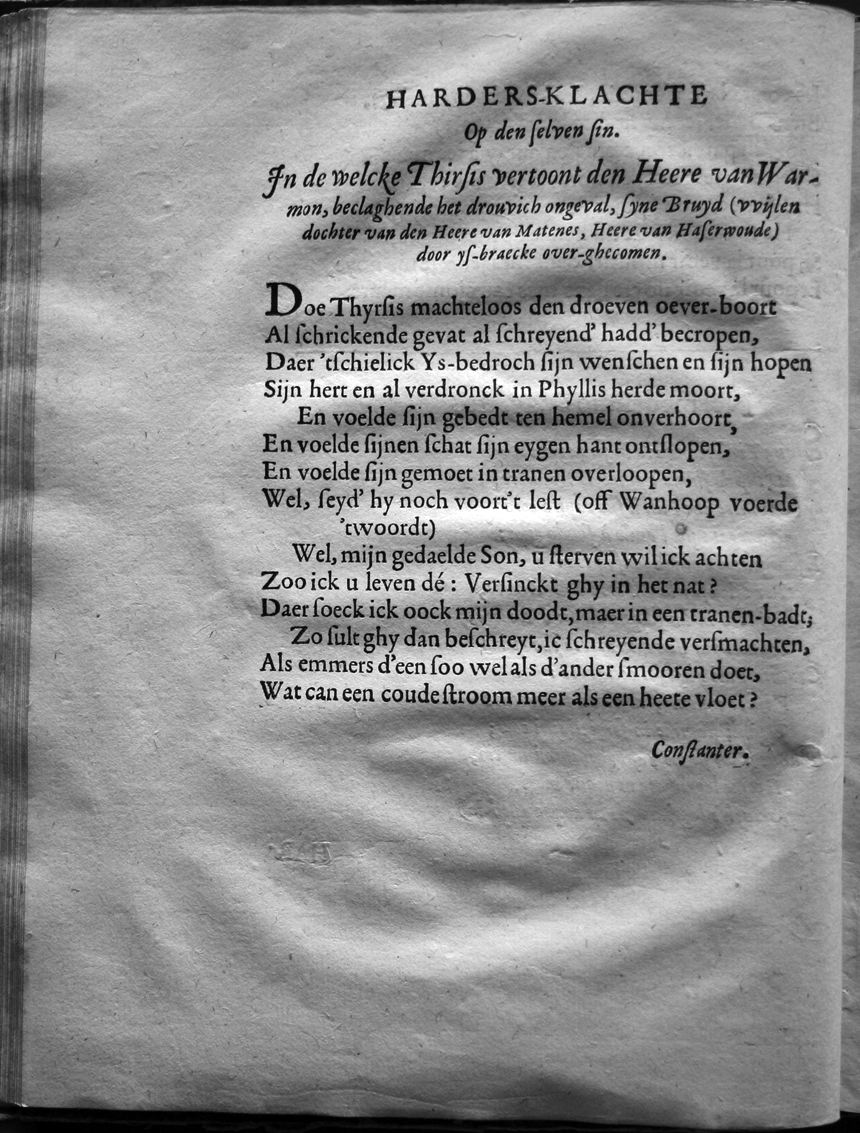 HARDERS-KLACHTE
Op den ſelven ſin.
In de welcke Thirſis vertoont den Heere van War-
mon, beclaghende het drouvich ongeval, ſyne Bruyd (vvijlen
dochter van den Heere van Matenes, Heere van Haſerwoude)
door yſ-braecke over-ghecomen.
Doe Thyrſis machteloos den droeven oever-boort
Al ſchrickende gevat al ſchreyend' hadd' becropen,
Daer 'tſchielick Ys-bedroch ſijn wenſchen en ſijn hopen
Sijn hert en al verdronck in Phyllis herde moort,
En voelde ſijn gebedt ten hemel onverhoort,
En voelde ſijnen ſchat ſijn eygen hant ontſlopen,
En voelde ſijn gemoet in tranen overloopen,
Wel, ſeyd' hy noch voort't leſt (off Wanhoop voerde
'twoordt)
Wel, mijn gedaelde Son, u ſterven wil ick achten
Zoo ick u leven dé: Verſinckt ghy in het nat?
Daer ſoeck ick oock mijn doodt, maer in een tranen-badt;
Zo ſult ghy dan beſchreyt, ic ſchreyende verſmachten,
Als emmers d'een ſoo wel als d'ander ſmooren doet,
Wat can een coude ſtroom meer als een heete vloet?
Conſtanter.